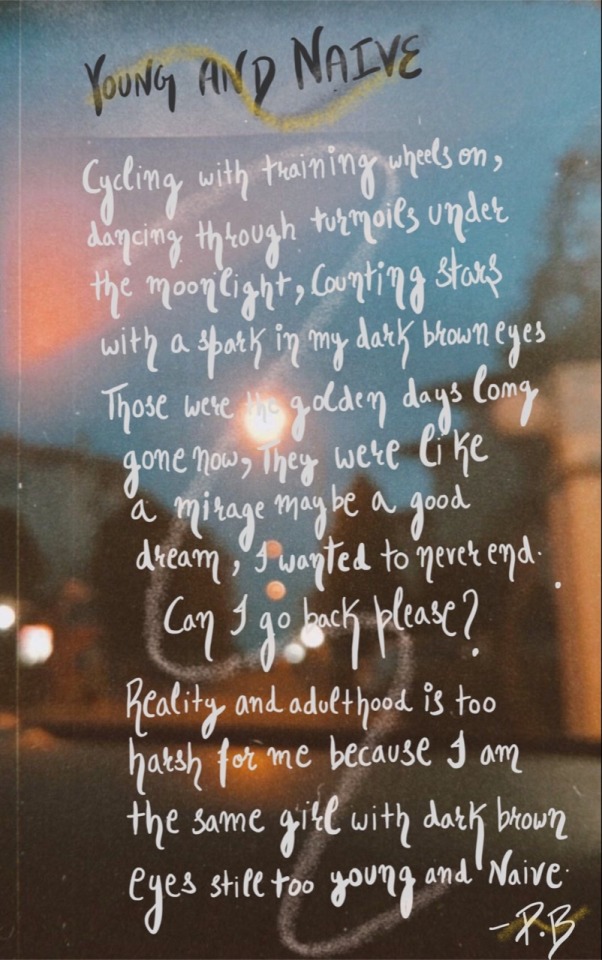 YOUNG AND NAIVE
Cycling with training wheels on,
dancing through turmoils under
the moonlight, Counting stars
with a spark in my dark brown eyes
Those were the golden days long
gone now, They were like
a mirage maybe a good
dream, I wanted to never end.
Can I go back please?
Reality and adulthood is too
harsh for me because I am
the same girl with dark brown
eyes still too young and Naive.
- P.B